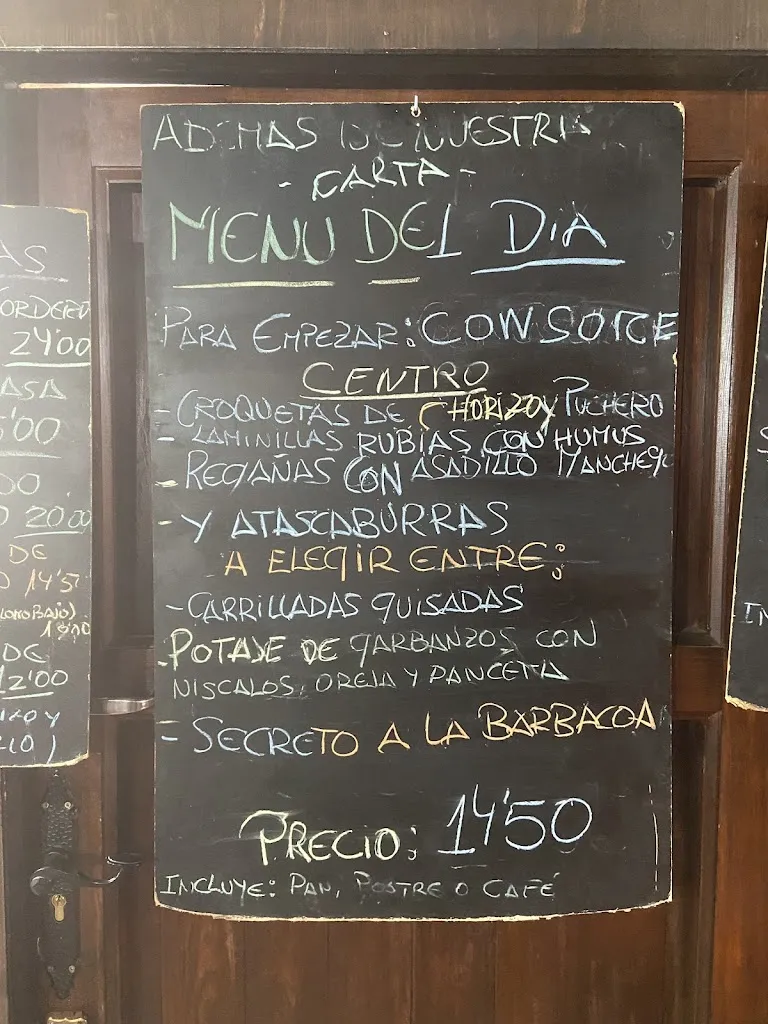 ADEMAS DE NUESTRA
- CARTA -
MENU DEL DIA
PARA EMPEZAR: CONSOME
CENTRO
- CROQUETAS DE CHORIZO Y PUCHERO
- LAMINILLAS RUBIAS CON HUMUS
- REGAÑAS CON ASADILLO MANCHEGO
- Y ATASCABURRAS
A ELEGIR ENTRE:
- CARRILLADAS GUISADAS
- POTAJE DE GARBANZOS CON
NISCALOS, OREJA Y PANCETA
- SECRETO A LA BARBACOA
PRECIO: 14'50
INCLUYE: PAN, POSTRE O CAFÉ
AS
CORDERO
24'00
ASA
5'00
DO
20'00
DE
14'5
LOMO BAJO)
DE
12'00
IZO Y
LLO)
IN